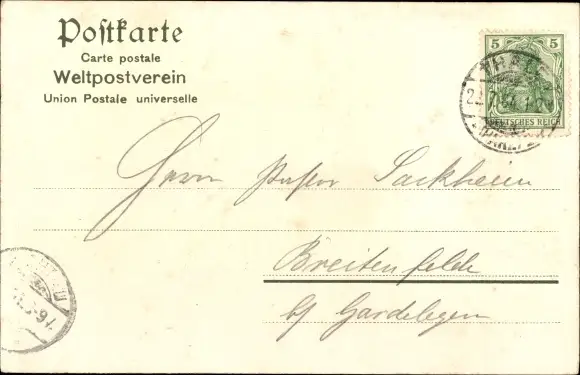 Postkarte
Carte postale
Weltpostverein
Union Postale universelle
5 5
DEUTSCHES REICH
Herrn Pastor Sackheim
Breitenfelde
b/ Gardelegen